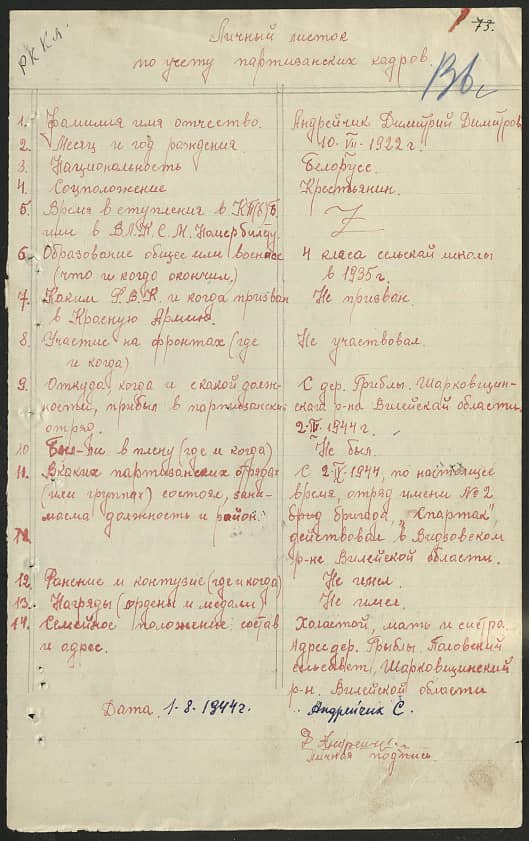 РККл.
73.
Личный листок
по учету партизанских кадров.
1. Фамилия имя отчество. Андрейчик Димитрий Димитров
2. Месяц и год рождения. 10-VII-1922 г.
3. Национальность Белорусс.
4. Соцположение Крестьянин.
5. Время вступления в КП(б)Б
или в ВЛКСМ. Номер билета
6. Образование общее или военное 4 класа сельскай школы
(что и когда окончил.) в 1935 г.
7. Каким Р.В.К. и когда призван Не призван.
в Красную Армию.
8. Участие на фронтах (где Не участвовал.
и когда)
9. Откуда, когда и с какой долж- С дер. Грыблы. Шарковщин-
ностей, прибыл в партизанский скаго р-на Вилейской области.
отряд. 2-IV-1944 г.
10 Был-ли в плену (где и когда) Не был.
11. В каких партизанских отрядах С 2-IV-1944, по настоящее
(или группах) состоял, зани- время, отряд имени № 2
маема должность и район. бригада „Спартак",
12. действовал в Видзовском
р-не Вилейской области.
12. Ранение и контузие (где и когда) Не имел.
13. Награды (ордены и медали) Не имел.
14. Семейное положение: состав Холастой, мать и систра.
и адрес. Адрес дер. Грыблы. Пасовский
сельсовет, Шарковщинский
р-н. Вилейской области
Дата. 1-8-1944 г. Андрейчик С.
Андрейчик
личная подпись